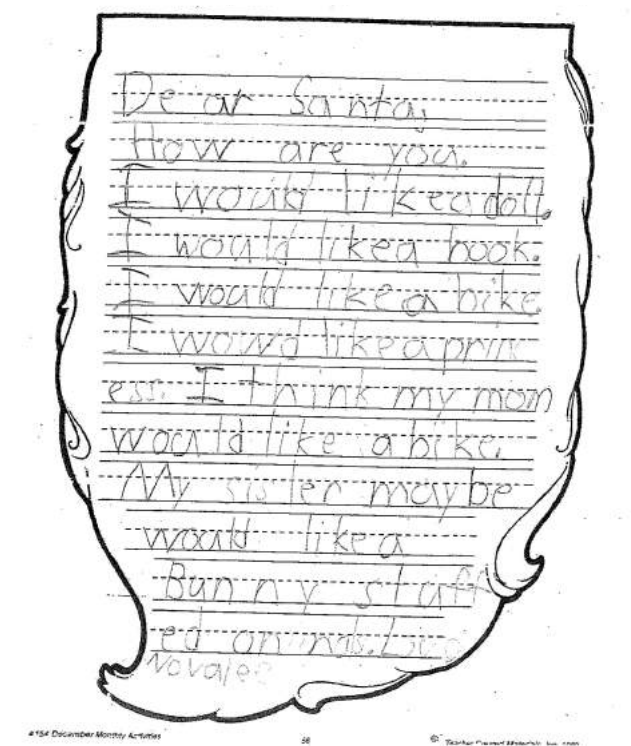 Dear Santa,
How are you.
I would like a doll.
I would like a book.
I would like a bike
I wowd like a prin
ess. I think my mom
would like a bike.
My sister maybe
would like a
Bunny stuff
ed
Novalee
#154 December Monthly Activities
56
© Teacher Created Materials, Inc.